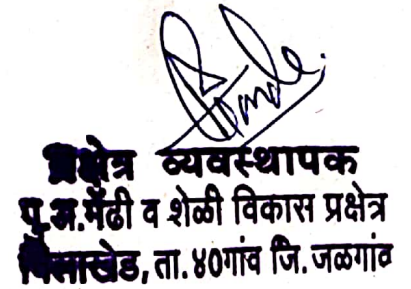 प्रक्षेत्र व्यवस्थापक
पु.अ.मेंढी व शेळी विकास प्रक्षेत्र
बिलाखेड, ता.४०गांव जि. जळगांव